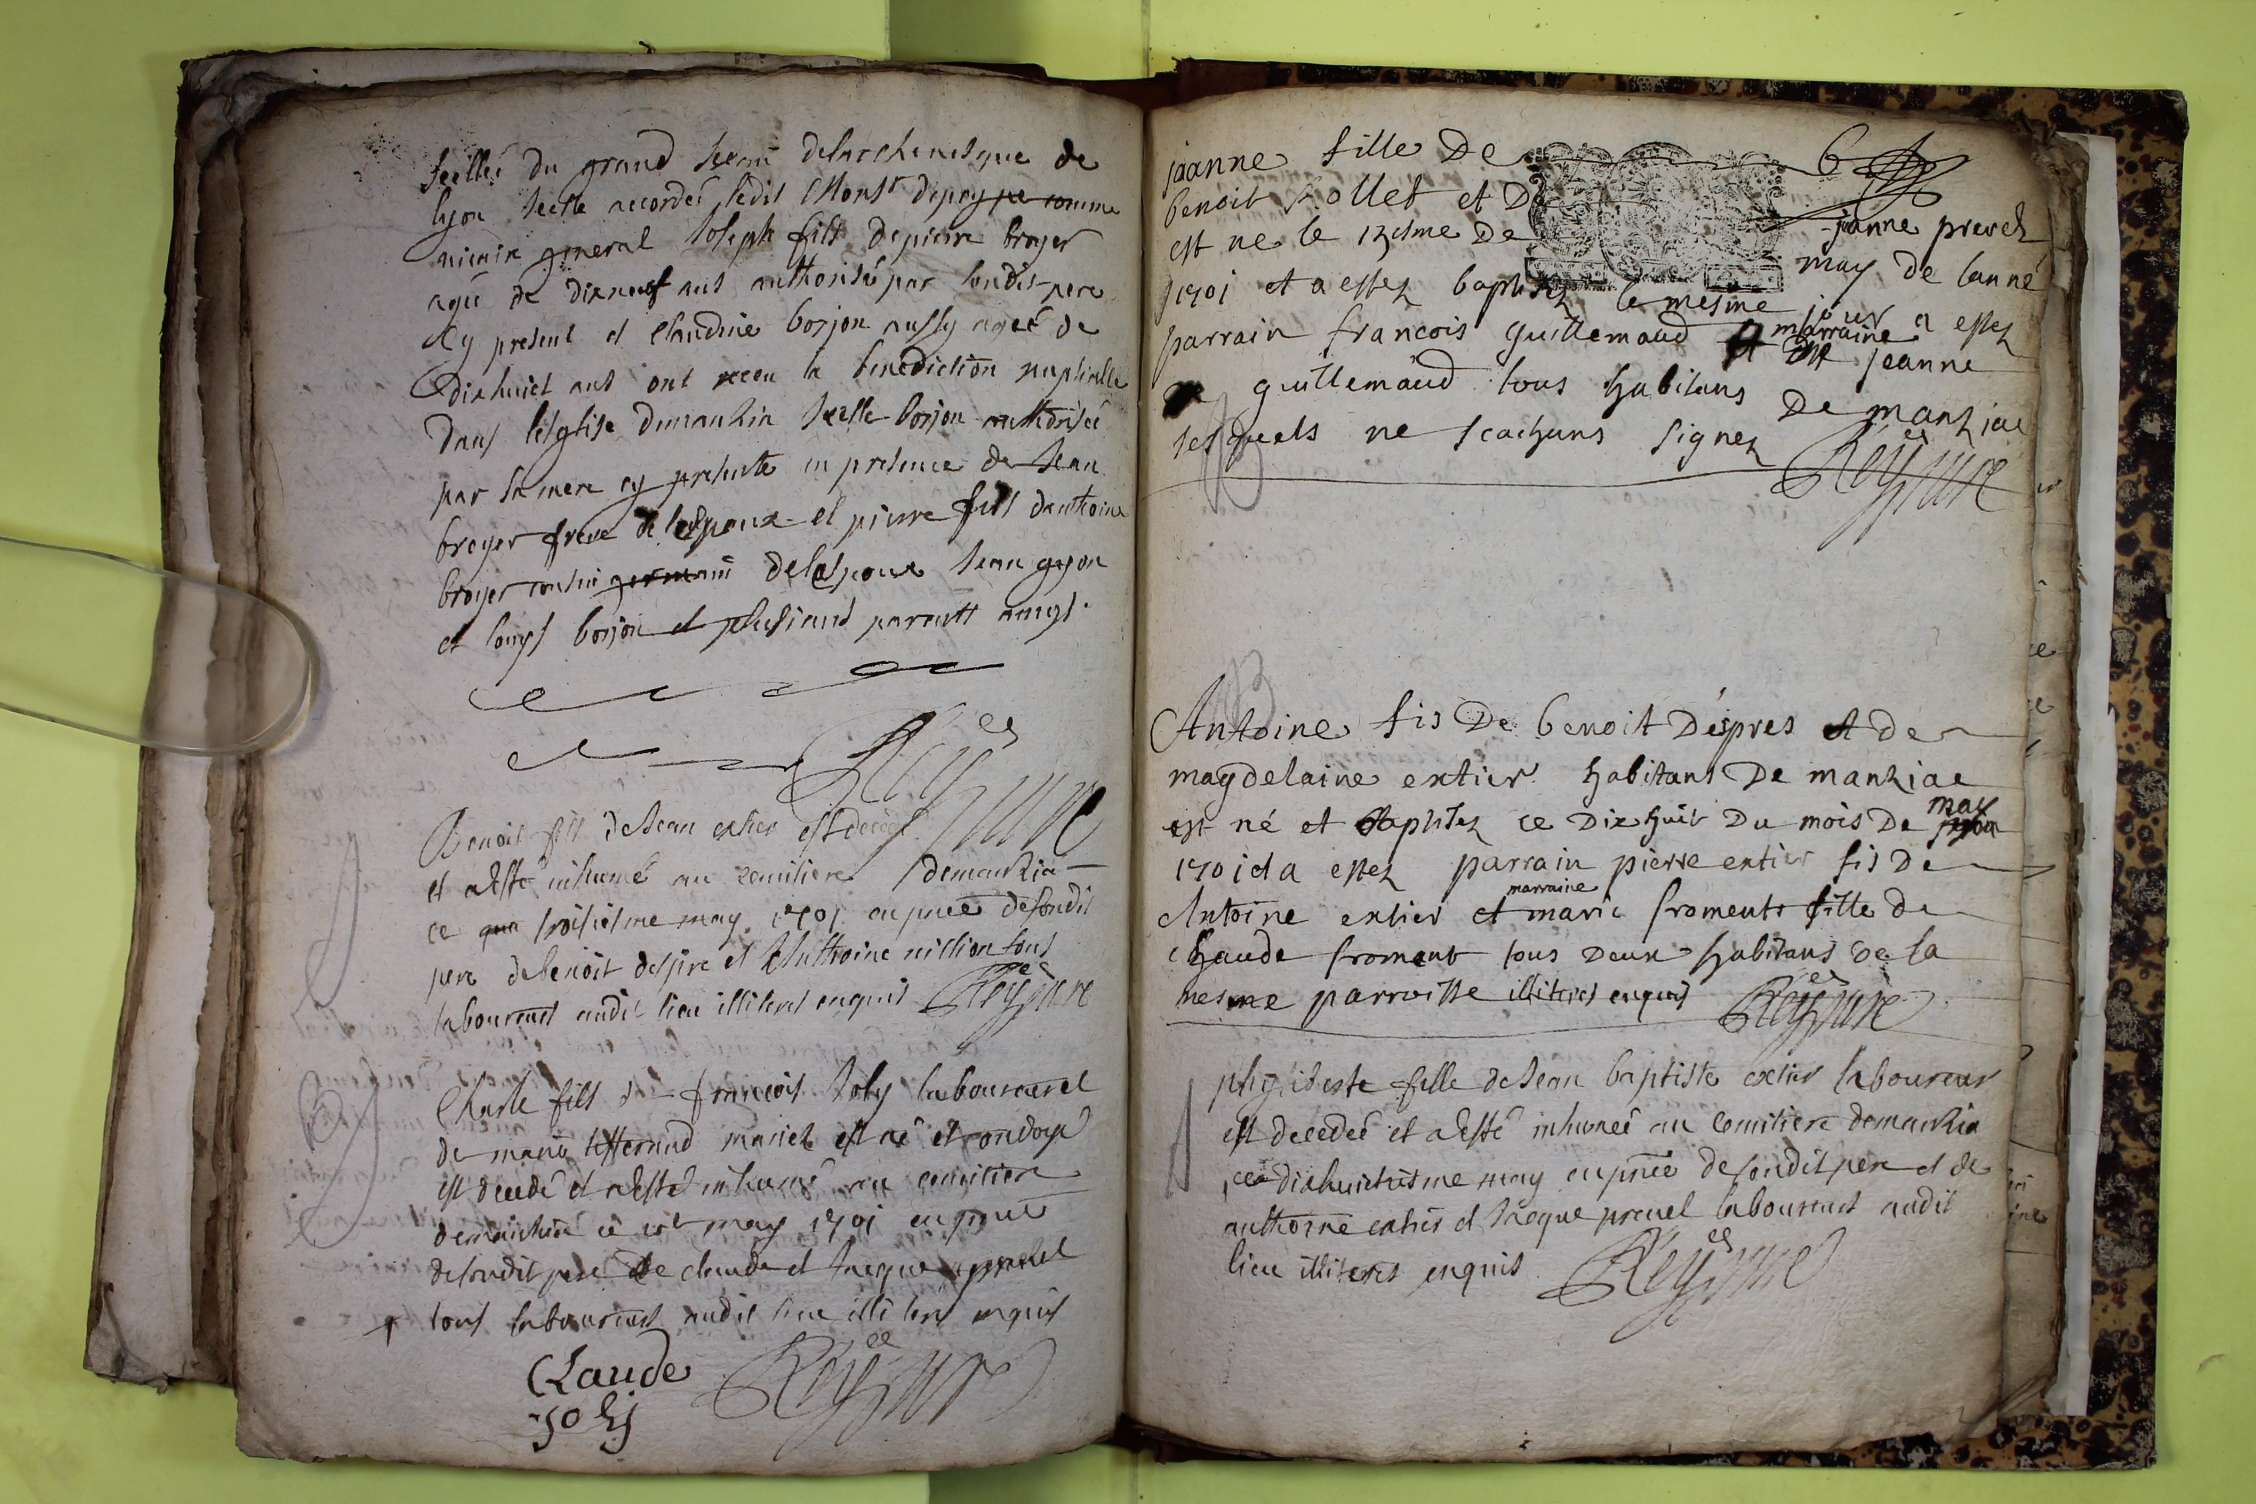 seellée du grand seau delarchevesque de
lyon icelle accordée ledit Monsr
vicaire general Joseph fils de pierre broyer
agé de dixneuf ans authorisé par sondit pere
cy present et Claudine borjon aussy agéé de
dixhuict ans ont receu la benediction nuptialle
dans l'esglise icelle borjon authorisée
par sa mere cy presente en presence de Jean
broyer frere de lespoux et pierre fils danthoine
broyer cousin germain delespoux Jean guyon
et louys borjon et plusieurs parents amys.
Reyssure
Benoit fils de Jean extier est decedé
et a esté inhumé au cemitiere demanzia
ce troisiesme may 1701 en pnce desondit
pere debenoit despre et Anthoine tous
laboureurs audit lieu illiteres enquis Reyssure
Charle fils d francois Joly laboureur et
de marie mariez est né et ondoyé
est decedé et a esté inhumé au cemitiere
demanzia ce may 1701 en pnce
desondit pere de claude et Jacque
tous laboureurs audit lieu illiteres enquis
Claude Reyssure
joly
6
jeanne fille De
benoit follet et De janne prevel
est ne le De may De lanné
1701 et a estez baptisez le mesme jour a estez
parrain francois guillemaud et marraine jeanne
guillemaud tous habitans De manziac
lesquels ne scachans signez Reyssure
Antoine fis De benoit Déspres et de
magdelaine extier habitans De manziac
est né et baptisez ce Dix huit Du mois De may
1701 et a estez parrain pierre extier fis De
Antoine extier et marraine marie froment fille de
Claude froment tous deux habitans de la
mesme parroisse illiteres enquis Reyssure
philiberte fille de Jean baptiste extier laboureur
est decedéé et a esté inhuméé au cemitiere demanzia
ce dixhuictiesme may en pnce desondit pere et de
anthoine extier et Jacque prevel laboureurs audit
lieu illiteres enquis Reyssure